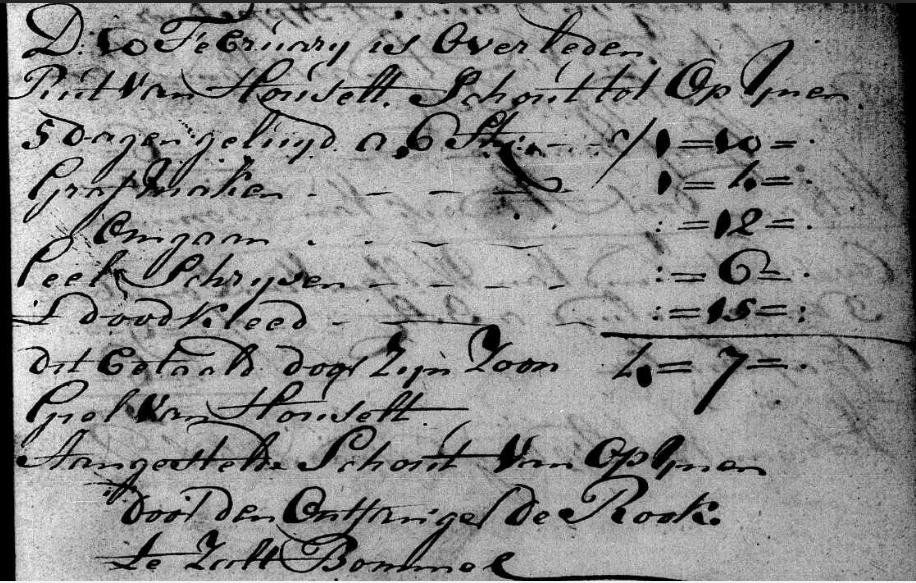 D: 10 February is Overleden
Rut Van Houselt. Schout tot Op Ijnen
5 dagen geluijd a 6 St: - - - ƒ 1 = 10 = .
Graf Maken - - - - 1 = 4 = .
Omgaan . - - - : = 12 = .
Ceel Schrijven - - - - : = 6 = .
t doodkleed - - - : = 15 = :
dit betaald door Zijn Zoon 4 = 7 = .
Giel Van Houselt
Aangestelde Schout Van Op Ijnen
door den Ontfanger De Rook.
te Zalt Bommel